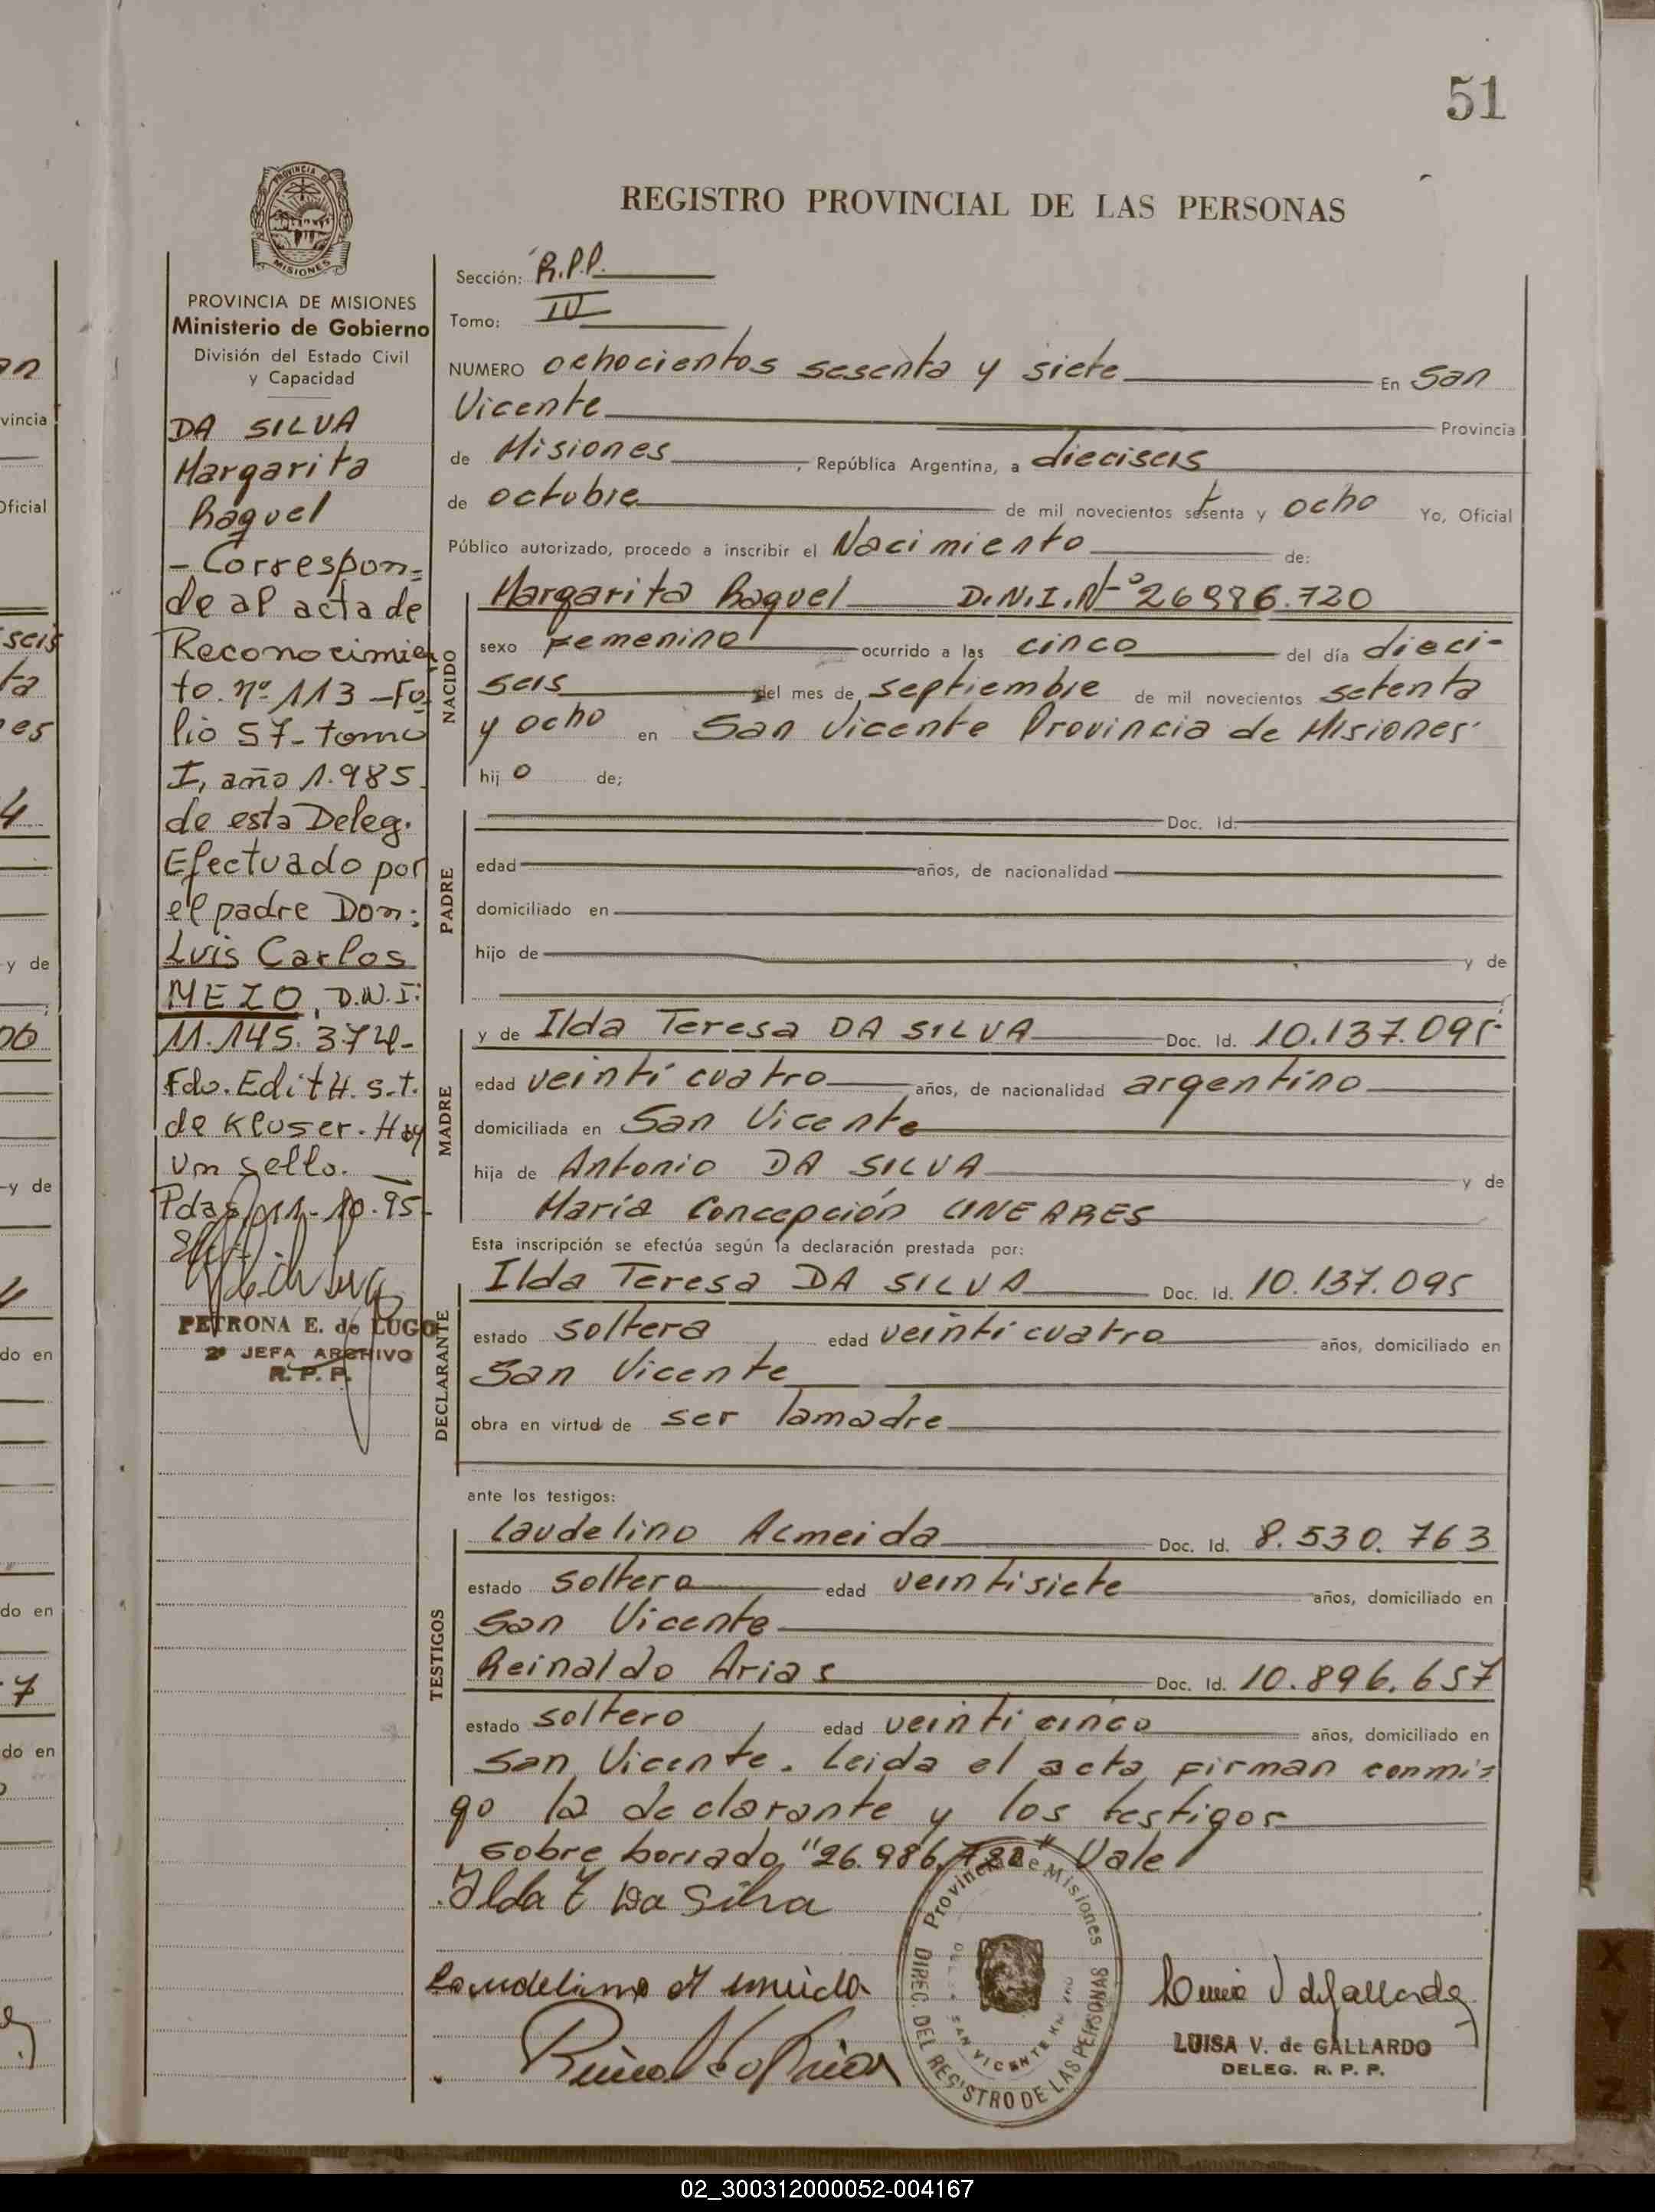 51
REGISTRO PROVINCIAL DE LAS PERSONAS
PROVINCIA DE
MISIONES
PROVINCIA DE MISIONES
Ministerio de Gobierno
División del Estado Civil
y Capacidad
DA SILVA
Margarita
Raquel
- Correspon=
de al acta de
Reconocimien
to. nº 113 - Fo
lio 57 - tomo
I, año 1.985.
de esta Deleg.
Efectuado por
el padre Don:
Luis Carlos
MEZO, D.N.I:
11.145.374-
Fdo. Edith. S.T.
de Kluser. Hay
un sello.
Pdas, 11-10.95-
PETRONA E. de LUGO
2ª JEFA ARCHIVO
R. P. P.
Sección: R.P.P.
Tomo: IV
NUMERO ochocientos sesenta y siete En San
Vicente Provincia
de Misiones, República Argentina, a dieciseis
de octubre de mil novecientos setenta y ocho Yo, Oficial
Público autorizado, procedo a inscribir el Nacimiento de:
NACIDO
Margarita Raquel D.N.I.Nº 26986.720
sexo femenino ocurrido a las cinco del día dieci-
seis del mes de septiembre de mil novecientos setenta
y ocho en San Vicente Provincia de Misiones
hijo de;
PADRE
Doc. Id.
edad años, de nacionalidad
domiciliado en
hijo de y de
MADRE
y de Ilda Teresa DA SILVA Doc. Id. 10.137.095
edad veinticuatro años, de nacionalidad argentino
domiciliada en San Vicente
hija de Antonio DA SILVA y de
María Concepción LINEARES
Esta inscripción se efectúa según la declaración prestada por:
DECLARANTE
Ilda Teresa DA SILVA Doc. Id. 10.137.095
estado soltera edad veinticuatro años, domiciliado en
San Vicente
obra en virtud de ser lamadre
ante los testigos:
TESTIGOS
Laudelino ALmeida Doc. Id. 8.530.763
estado soltero edad veintisiete años, domiciliado en
San Vicente
Reinaldo Arias Doc. Id. 10.896.657
estado soltero edad veinticinco años, domiciliado en
San Vicente. Leida el acta firman conmi=
go la declarante y los testigos
sobre borrado "26.986.720" Vale
Ilda T Da Silva
Laudelino Almeida
Reinaldo Arias
Provincia de Misiones
DIREC. DEL REGISTRO DE LAS PERSONAS
SAN VICENTE
LUISA V. de GALLARDO
DELEG. R. P. P.
02_300312000052-004167